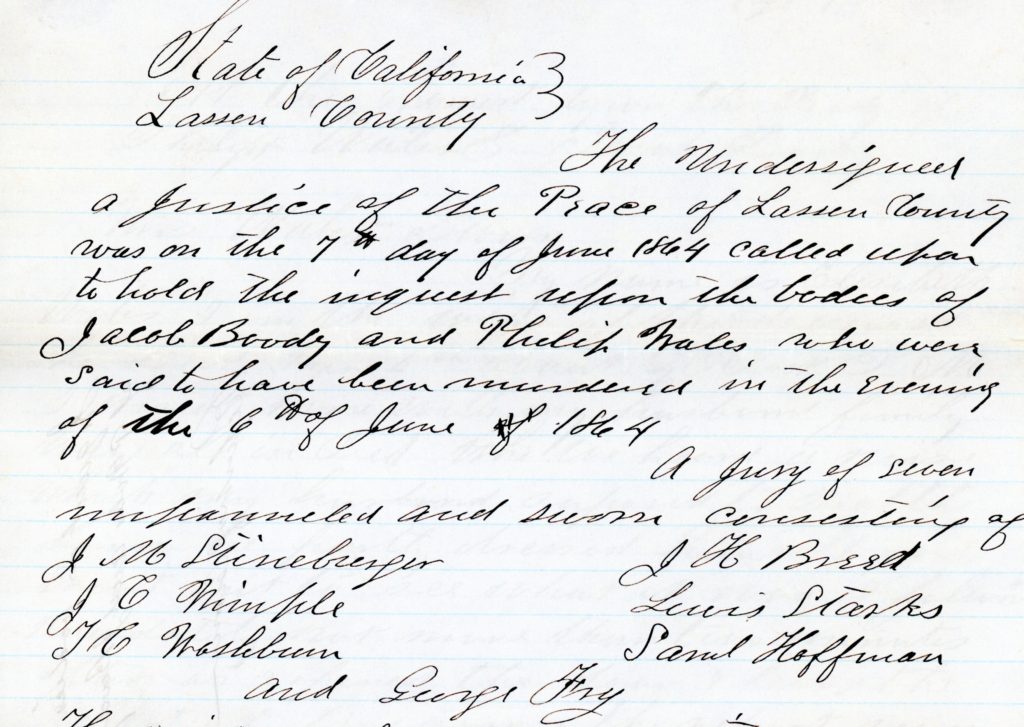 State of California }
Lassen County }
The Undersigned
a Justice of the Peace of Lassen County
was on the 7th day of June 1864 called upon
to hold the inquest upon the bodies of
Jacob Boody and Philip Wales, who were
said to have been murdered in the Evening
of the 6th of June of 1864
A Jury of seven
impanneled and sworn consisting of
J M Stineburger J H Breed
J C Wimple Lewis Starks
T C Washburn Saml Hoffman
and George Fry